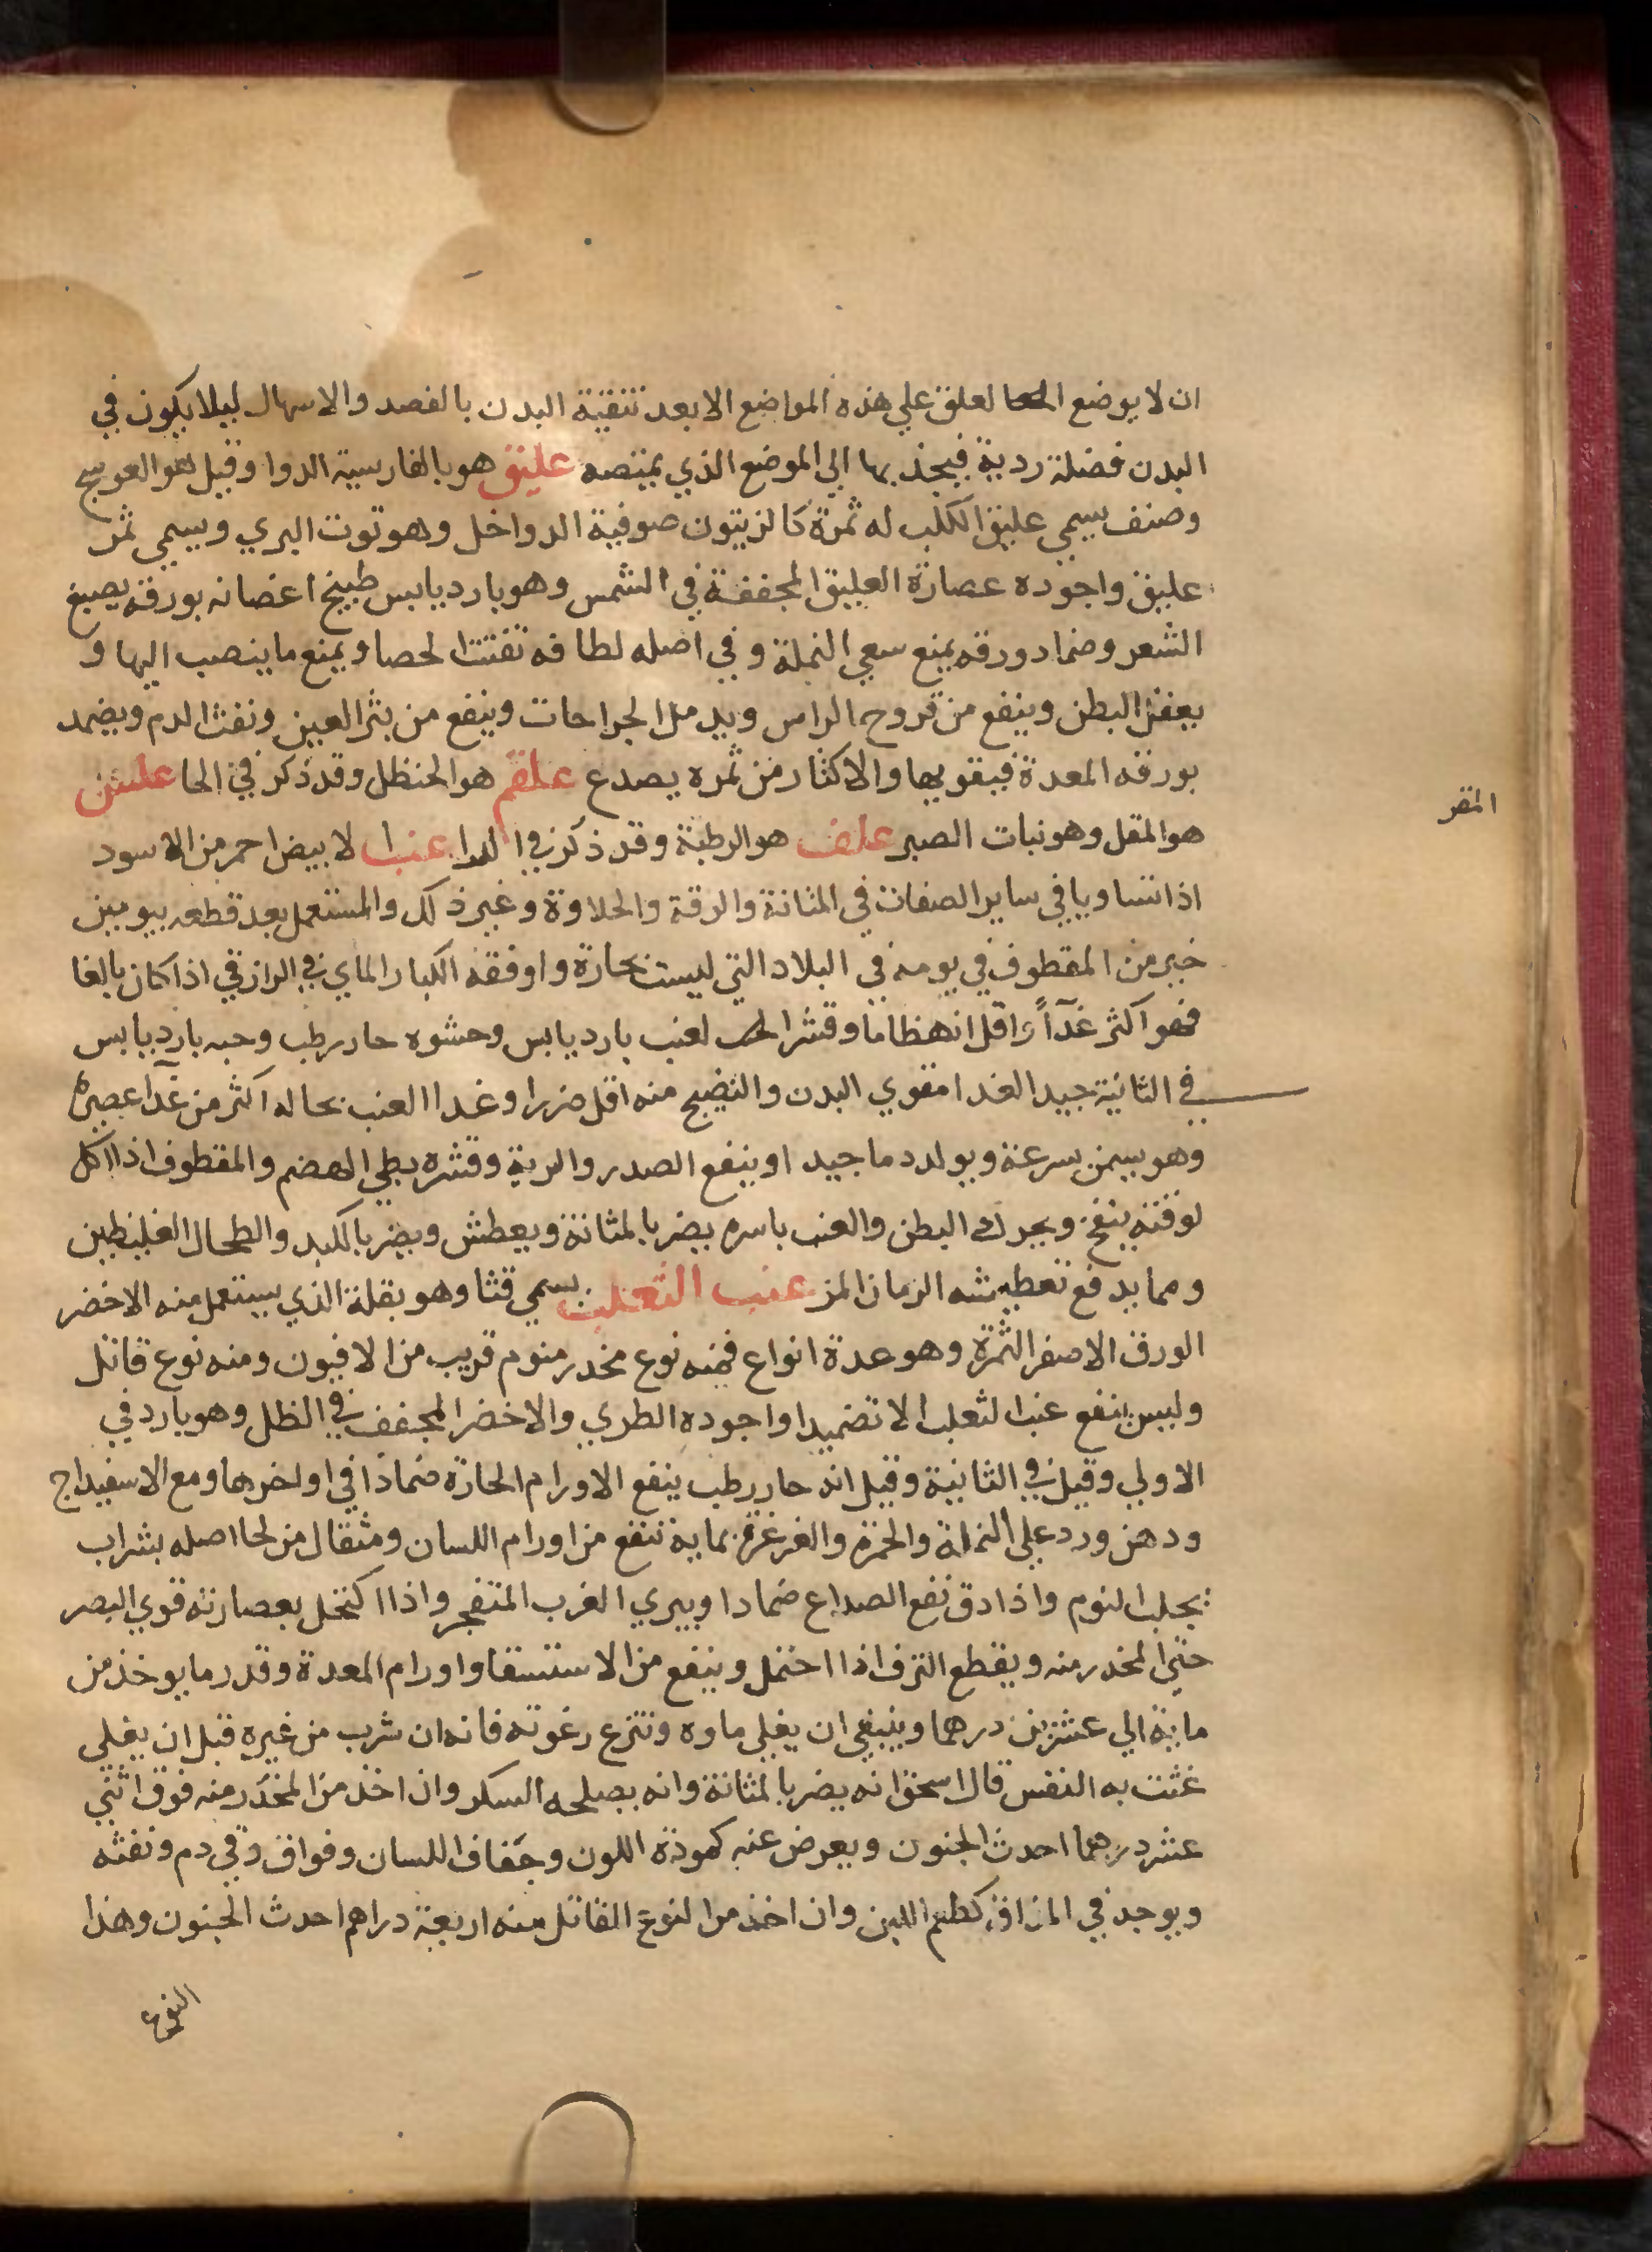 ان لا يوضع العلق علي هذه المواضع الا بعد تنقية البدن بالفصد والاسهال ليلا يكون في
البدن فضلة ردية فيجذبها الي الموضع الذي يمتصه عليق هو بالفارسية الدوا وقيل هو العوسج
وصنف يسمي عليق الكلب له ثمرة كالزيتون صوفية الدواخل وهو توت البري ويسمي ثمر
عليق واجوده عصارة العليق المجففة في الشمس وهو بارد يابس طبيخ اغصانه بورقه يصبغ
الشعر وضماد ورقه يمنع سعي النملة وفي اصله لطافه تفتت الحصا ويمنع ما ينصب اليها و
يعقل البطن وينفع من قروح الراس ويدمل الجراحات وينفع من بثر العين ونفث الدم ويضمد
بورقه المعدة فيقويها والاكثار من ثمره يصدع علقم هو الحنظل وقد ذكر في الحا علس
هو المقل وهو نبات الصبر علف هو الرطبة وقد ذكر في الرا عنب الابيض احمر من الاسود
المقر
اذا تساويا في ساير الصفات في المثانة والرقة والحلاوة وغير ذلك والمستعمل بعد قطعه بيومين
خير من المقطوف في يومه في البلاد التي ليست بحارة واوفقه الكبار الماي في الرازقي اذا كان بالغا
فهو اكثر غدآً واقل انهظاما وقشر العنب بارد يابس وحشوه حار رطب وحبه بارد يابس
في الثانية جيد الغدا مقوي البدن والنضيج منه اقل ضررا وغدا العنب بحاله اكثر من غدآ عصيره
وهو يسمن سرعة ويولد دما جيدا وينفع الصدر والرية وقشره بطي الهضم والمقطوف اذا اكل
لوقته ينفخ ويحرك البطن والعنب باسره يضر بالمثانة ويعطش ويضر بالكبد والطحال الغليظين
ومما يدفع تعطيشه الرمان المز عنب الثعلب يسمي قثا وهو بقلة الذي يستعمل منه الاخضر
الورق الاصفر الثمرة وهو عدة انواع فمنه نوع مخدر منوم قريب من الافيون ومنه نوع قاتل
وليس ينفع عنب الثعلب الا تضميدا واجوده الطري والاخضر المجفف في الظل وهو بارد في
الاولي وقيل في الثانية وقيل انه حار رطب ينفع الاورام الحارة ضمادا في اواخرها ومع الاسفيداج
ودهن ورد علي النملة والحمرة والغرغرة بمايه تنفع من اورام اللسان ومثقال من لحا اصله بشراب
يجلب النوم واذا دق نفع الصداع ضمادا ويبري الغرب المتفجر واذا اكتحل بعصارته قوي البصر
حتي المخدر منه ويقطع النزف اذا احتمل وينفع من الاستسقا واورام المعدة وقدر ما يوخذ من
مايه الي عشرين درهما وينبغي ان يغلي ماوه وتنزع رغوته فانه ان شرب من غيره قبل ان يغلي
غثت به النفس قال اسحق انه يضر بالمثانة وانه يصلحه السكر وان اخذ من المخدر منه فوق اثني
عشر درهما احدث الجنون ويعرض عنه كمودة اللون وجفاف اللسان وفواق وقي دم ونفثه
ويوجد في المذاق كطعم اللبن وان اخذ من النوع القاتل منه اربعة دراهم احدث الجنون وهذا
النوع